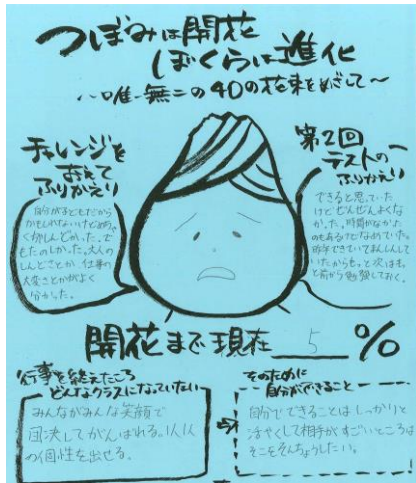 つぼみは開花
ぼくらは進化
～唯一無二の40の花束をめざして～
チャレンジを
おえて
ふりかえり
自分が子どもだから
かもしれないけどめちゃ
くちゃしんどかった。で
もたのしかった。大人の
しんどさとか、仕事の
大変さとかがよく
分かった。
第2回
テストの
ふりかえり
できると思っていた
けどぜんぜんよくな
かった。時間がなかった
のもあるけどなめていた。
昨年できていてまんしんして
いたからもっと次はも
と前から勉強しておく。
開花まで現在 5 %
行事を終えたころ
どんなクラスになっていたい
みんながみんな笑顔で
団決してがんばれる。1人1人
の個性を出せる。
そのために
自分ができること
自分でできることはしっかりと
活やくして相手がすごいところは
そこをそんちょうしたい。